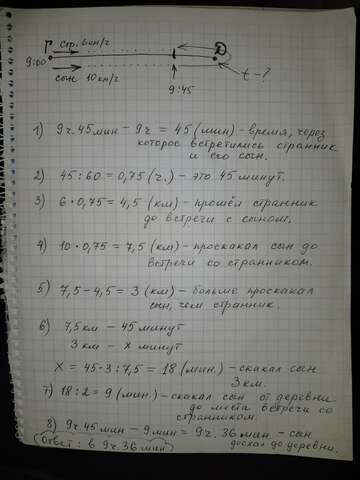 Г стр. 6 км/ч Д
9:00
сын 10 км/ч
9:45
t - ?
1) 9ч. 45 мин - 9ч = 45 (мин) - время, через
которое встретились странник
и его сын.
2) 45 : 60 = 0,75 (ч.) - это 45 минут.
3) 6 · 0,75 = 4,5 (км) - прошёл странник
до встречи с сыном.
4) 10 · 0,75 = 7,5 (км) - проскакал сын до
встречи со странником.
5) 7,5 - 4,5 = 3 (км) - больше проскакал
сын, чем странник.
6) 7,5 км - 45 минут
3 км - x минут
X = 45 · 3 : 7,5 = 18 (мин.) - скакал сын
3 км.
7) 18 : 2 = 9 (мин.) - скакал сын от деревни
до места встречи со
странником
8) 9ч. 45 мин - 9 мин = 9ч. 36 мин. - сын
доехал до деревни.
Ответ: в 9ч. 36 мин